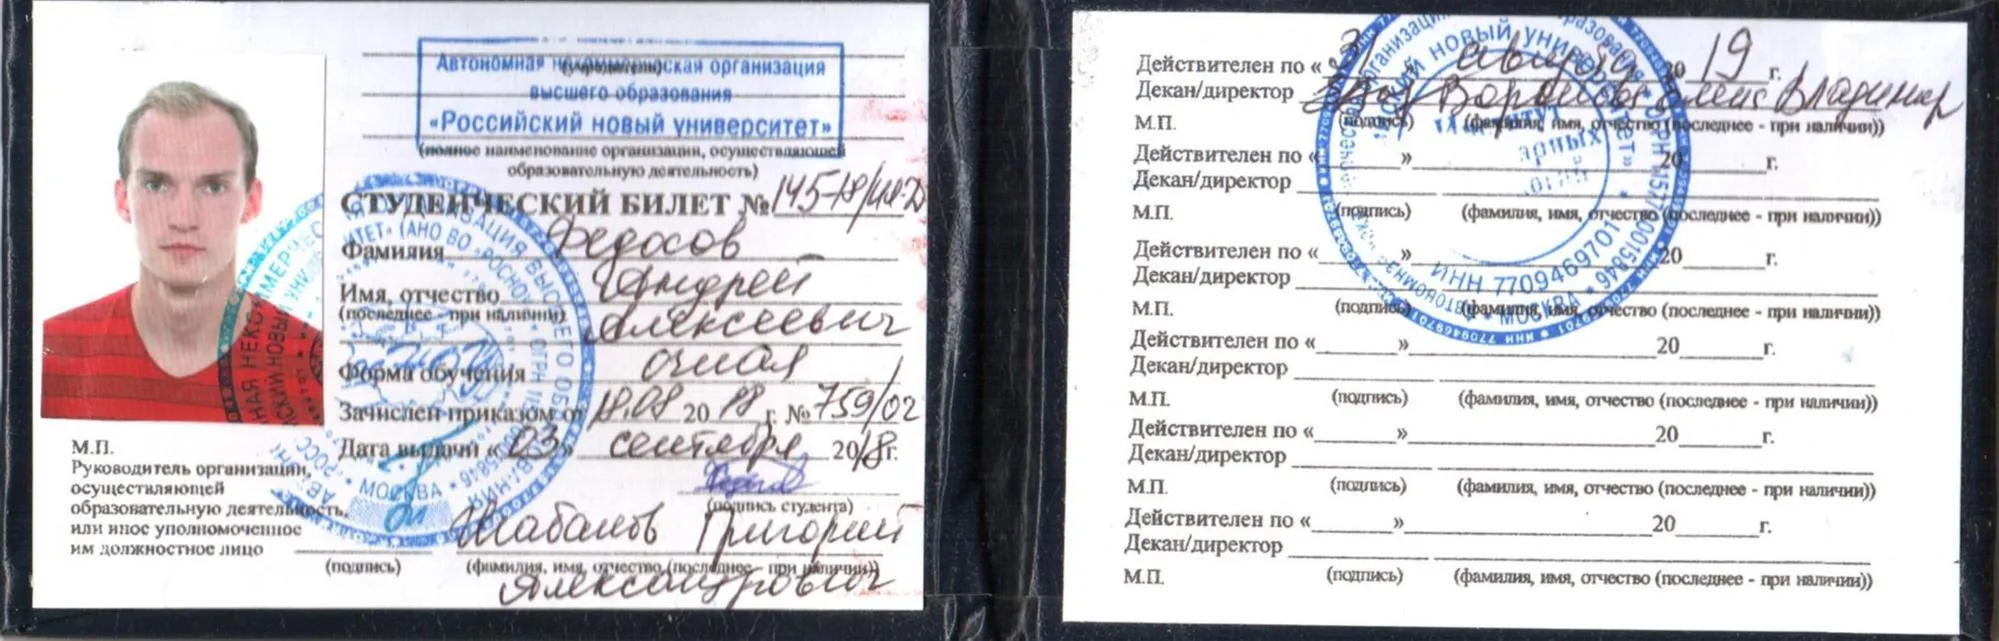 Автономная некоммерческая организация
(учредитель)
высшего образования
«Российский новый университет»
(полное наименование организации, осуществляющей
образовательную деятельность)
СТУДЕНЧЕСКИЙ БИЛЕТ №
Фамилия Федосов
Имя, отчество Андрей
(последнее - при наличии) Алексеевич
Форма обучения очная
Зачислен приказом от 18.08 20 18 г. № 759/02
Дата выдачи « 03 » сентября 2018г.
(подпись студента)
М.П.
Руководитель организации,
осуществляющей
образовательную деятельность,
или иное уполномоченное
им должностное лицо
Шабанов Григорий
(подпись) (фамилия, имя, отчество (последнее - при наличии))
Александрович
МОСКВА
Действителен по « 31 августа 20 19 г.
Декан/директор
М.П. (подпись) (фамилия, имя, отчество (последнее - при наличии))
Действителен по « » 20 г.
Декан/директор
М.П. (подпись) (фамилия, имя, отчество (последнее - при наличии))
Действителен по « » 20 г.
Декан/директор
М.П. (подпись) (фамилия, имя, отчество (последнее - при наличии))
Действителен по « » 20 г.
Декан/директор
М.П. (подпись) (фамилия, имя, отчество (последнее - при наличии))
Действителен по « » 20 г.
Декан/директор
М.П. (подпись) (фамилия, имя, отчество (последнее - при наличии))
Действителен по « » 20 г.
Декан/директор
М.П. (подпись) (фамилия, имя, отчество (последнее - при наличии))
ИНН 7709469701
МОСКВА